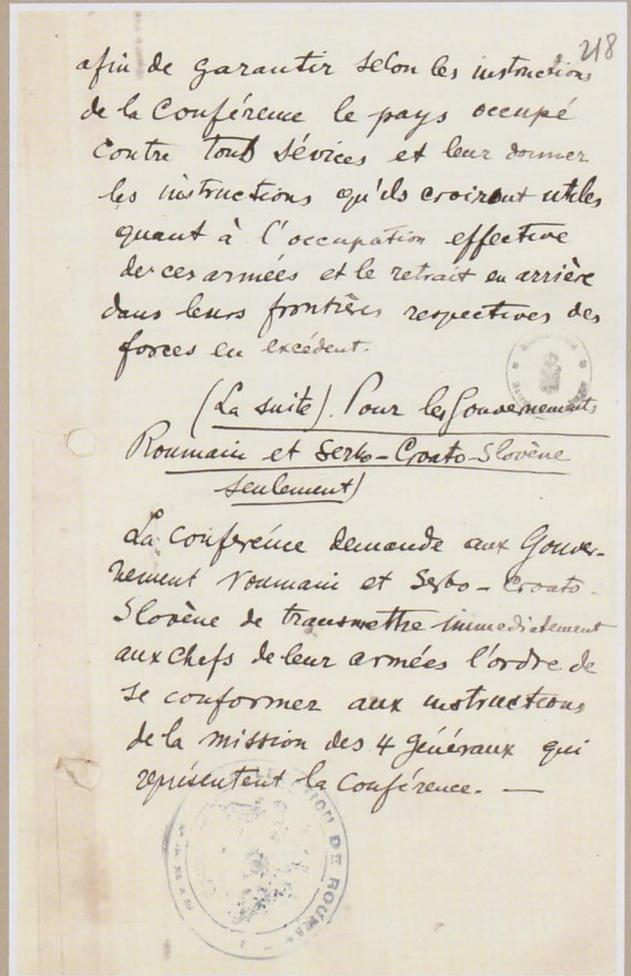 218
afin de garantir selon les instructions
de la Conférence le pays occupé
contre tous sévices et leur donner
les instructions qu'ils croiront utiles
quant à l'occupation effective
de ces armées et le retrait en arrière
dans leurs frontières respectives des
forces en excédent.
(La suite). Pour les Gouvernements
Roumain et Serbo-Croato-Slovène
seulement)
La conférence demande aux Gouver-
nement roumain et Serbo-Croato-
Slovène de transmettre immédiatement
aux chefs de leur armées l'ordre de
se conformer aux instructions
de la mission des 4 généraux qui
représentent la Conférence. —
DE ROUM